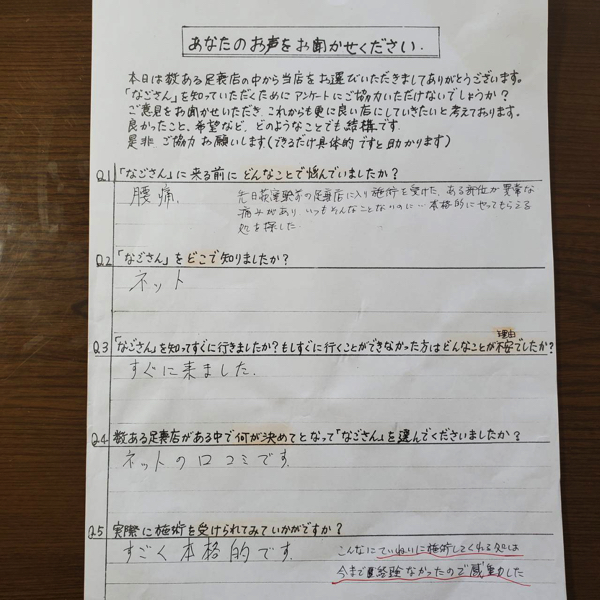 あなたのお声をお聞かせください.
本日は数ある足裏店の中から当店をお選びいただきましてありがとうございます。
「なごさん」を知っていただくためにアンケートにご協力いただけないでしょうか?
ご意見をお聞かせいただき これからも更に良い店にしていきたいと考えております。
良かったこと、希望など、どのようなことでも結構です.
是非ご協力お願いします(できるだけ具体的ですと助かります)
Q.1 「なごさん」に来る前にどんなことで悩んでいましたか?
腰痛.
先日荻窪駅前の足裏店に入り施術を受けた、ある部位が異常な
痛みがあり いつもそんなことないのに… 本格的にやってもらえる
処を探した.
Q.2 「なごさん」をどこで知りましたか?
ネット
Q.3 「なごさん」を知ってすぐに行きましたか?もしすぐに行くことができなかった方はどんなことが不安でしたか?
理由
すぐに来ました.
Q.4 数ある足裏店がある中で何が決めてとなって「なごさん」を選んでくださいましたか?
ネットの口コミです.
Q.5 実際に施術を受けられてみていかがですか?
すごく本格的です.
こんなにていねいに施術してくれる処は
今まで経験なかったので感動した